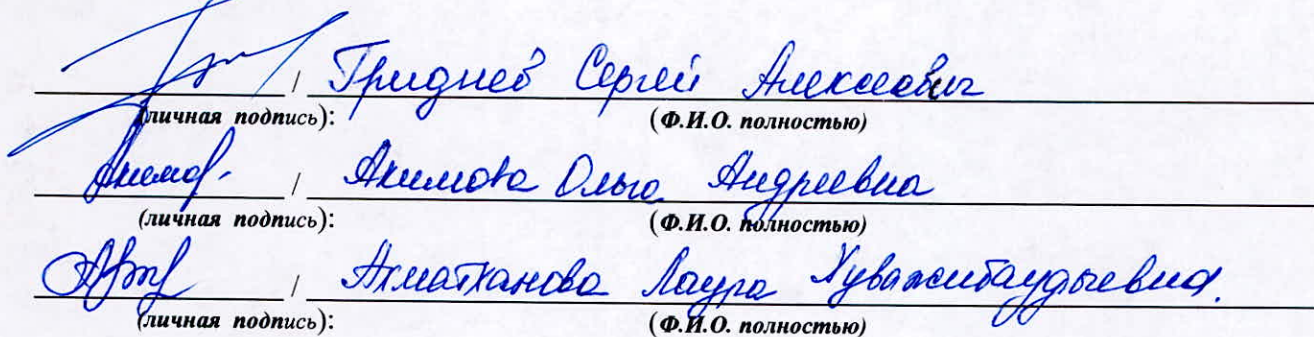 / Гриднев Сергей Алексеевич
(личная подпись): (Ф.И.О. полностью)
/ Акимова Ольга Андреевна
(личная подпись): (Ф.И.О. полностью)
/ Ахматханова Лаура
(личная подпись): (Ф.И.О. полностью)